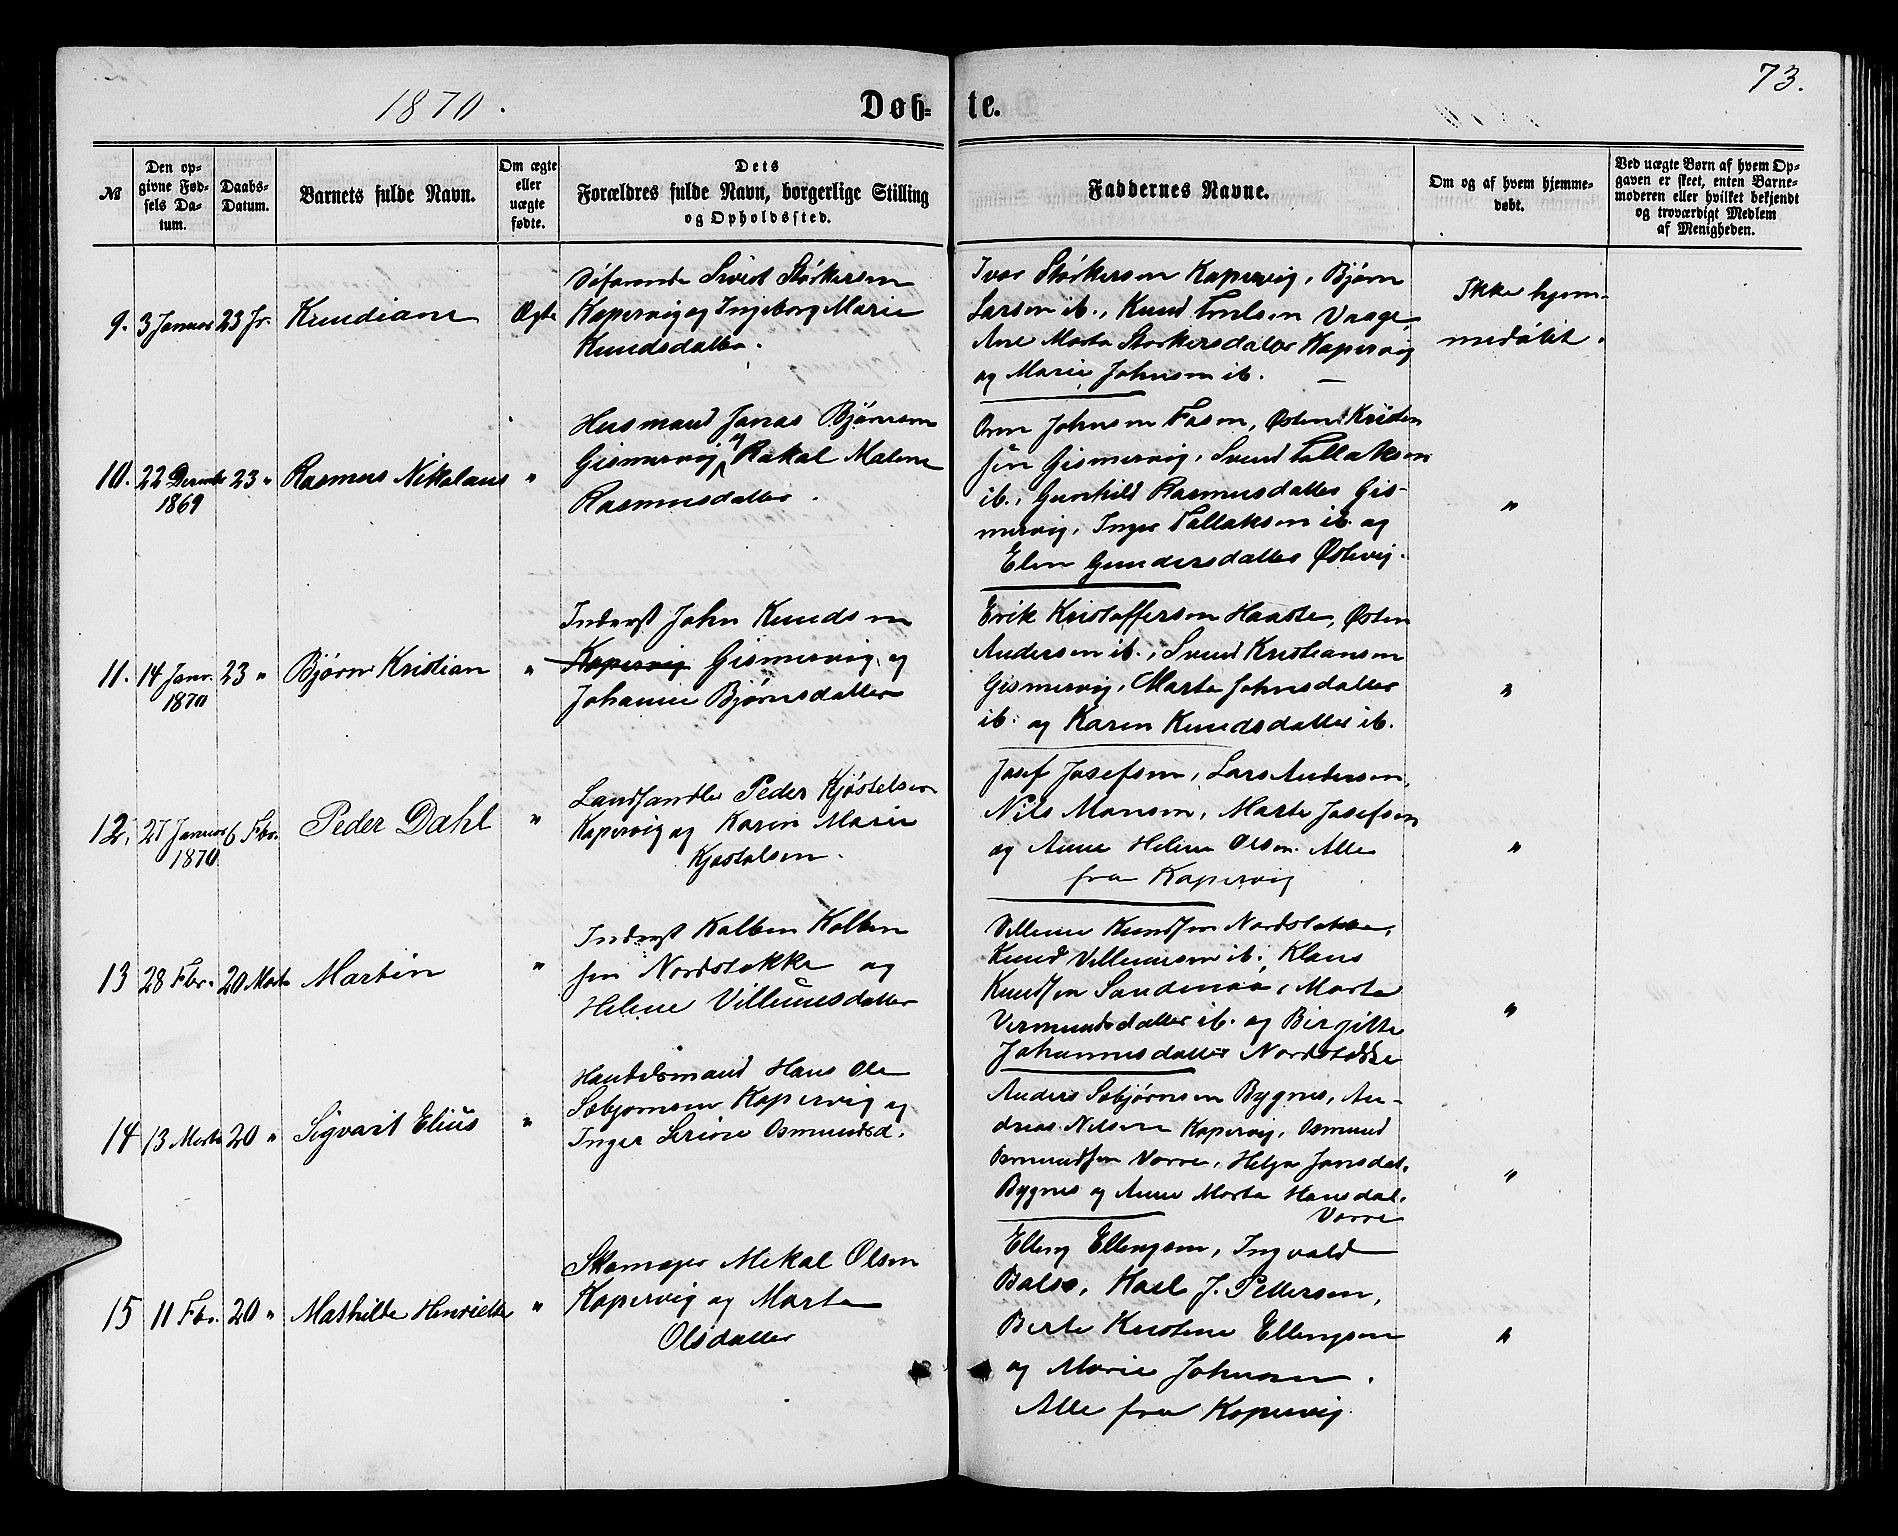 1870.
Døb=
te.
73.
№
Den op-
givne Fød-
sels Da-
tum.
Daabs-
Datum.
Barnets fulde Navn.
Om ægte
eller
uægte
fødte.
Dets
Forældres fulde Navn, borgerlige Stilling
og Opholdssted.
Faddernes Navne.
Om og af hvem hjemme-
døbt.
Ved uægte Børn af hvem Op-
gaven er skeet, enten Barne-
moderen eller hvilket bekjendt
og troværdigt Medlem
af Menigheden.
9. 3 Januar 23 Jr. Knudiane Ægte
Søfarende Sivert Størkersen
Kapervig og Ingeborg Marie
Knudsdatter.
Ivar Størkersen Kapervig, Bjørn
Larsen ib., Knud Vaage,
Ane Marta Størkersdatter Kapervig
og Marie Johnsen ib.
Ikke hjem-
medøbt.
10. 22 Decembr 23 " Rasmus Nikolaus "
1869
Husmand Jonas Bjørnsen
Gismervig og Rakal Malene
Rasmusdatter.
Johnsen Fosen, Østen Kristen
sen Gismervig, Svend Tollaksen
ib., Gunhild Rasmusdatter Gis-
mervig, Inger Tollaksen ib. og
Elen Gundersdatter Østevig.
"
11. 14 Janr. 23 " Bjørn Kristian "
1870
Inderst John Knudsen
Kapervig Gismervig og
Johanne Bjørnsdatter
Erik Kristoffersen Haaste, Østen
Andersen ib., Svend Kristiansen
Gismervig, Marta Johnsdatter
ib. og Karen Knudsdatter ib.
"
12. 27 Januar 6 Fbr. Peder Dahl "
1870.
Landhandler Peder Kjøstelsen
Kapervig og Karen Marie
Kjøstelsen.
Josef Josefsen, Lars Andersen,
Nils Monsen, Marte Josefsen
og Anne Helene Olsen. Alle
fra Kapervig
"
13 28 Fbr. 20 Marts Martin "
Inderst Kolben Kolben
sen Nordstokke og
Helene Villumsdatter
Villum Knudsen Nordstokke,
Knud Villumsen ib., Klaus
Knudsen Sandenaa, Marta
Vermundsdatter ib. og Birgitte
Johannesdatter Nordstokke
"
14 13 Marts 20 " Sigvart Elius "
Handelsmand Hans Ole
Sebjørnsen Kapervig og
Inger Serine Osmundsd.
Anders Sebjørnsen Bygnes, An-
dreas Nilsen Kapervig, Osmund
Osmundsen Vorre, Helga Jonsdat.
Bygnes og Anne Marta Hansdat.
Vorre
"
15 11 Fbr. 20 " Mathilde Henriette "
Skomager Mekal Olsen
Kapervig og Marta
Olsdatter
Elling Ellingsen, Ingvald
J. Pettersen,
Berte Kristene Ellingsen
og Marie Johnsen.
Alle fra Kapervig
"